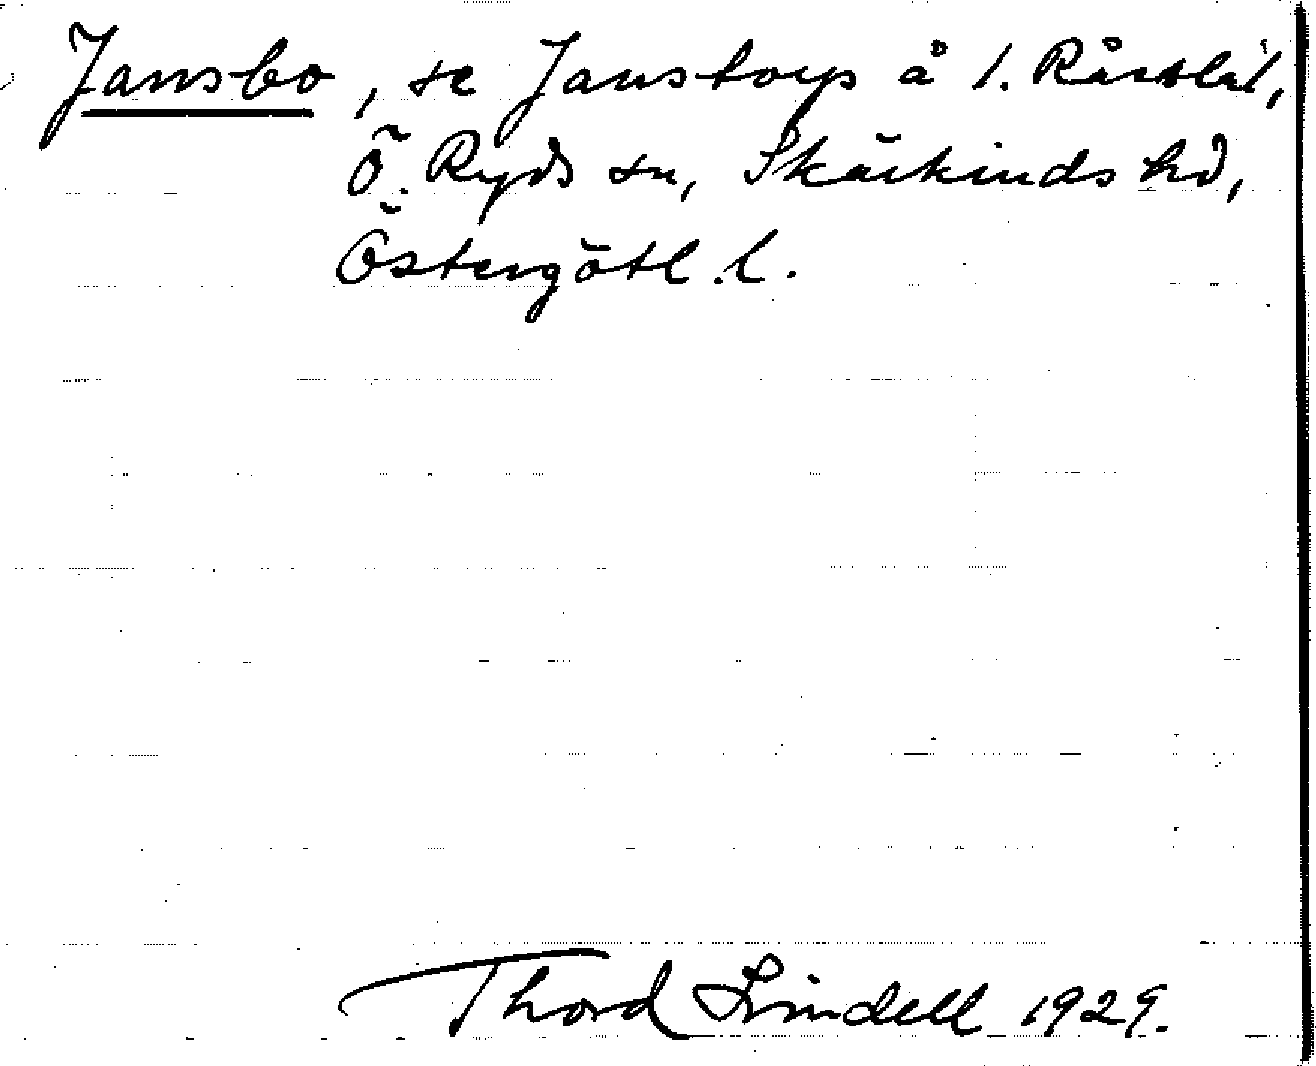 Jansbo, se Janstorp å 1. Råsslät,
Ö. Ryds sn, Skärkinds hd,
Östergötl. l.
Thord Lindell 1929.